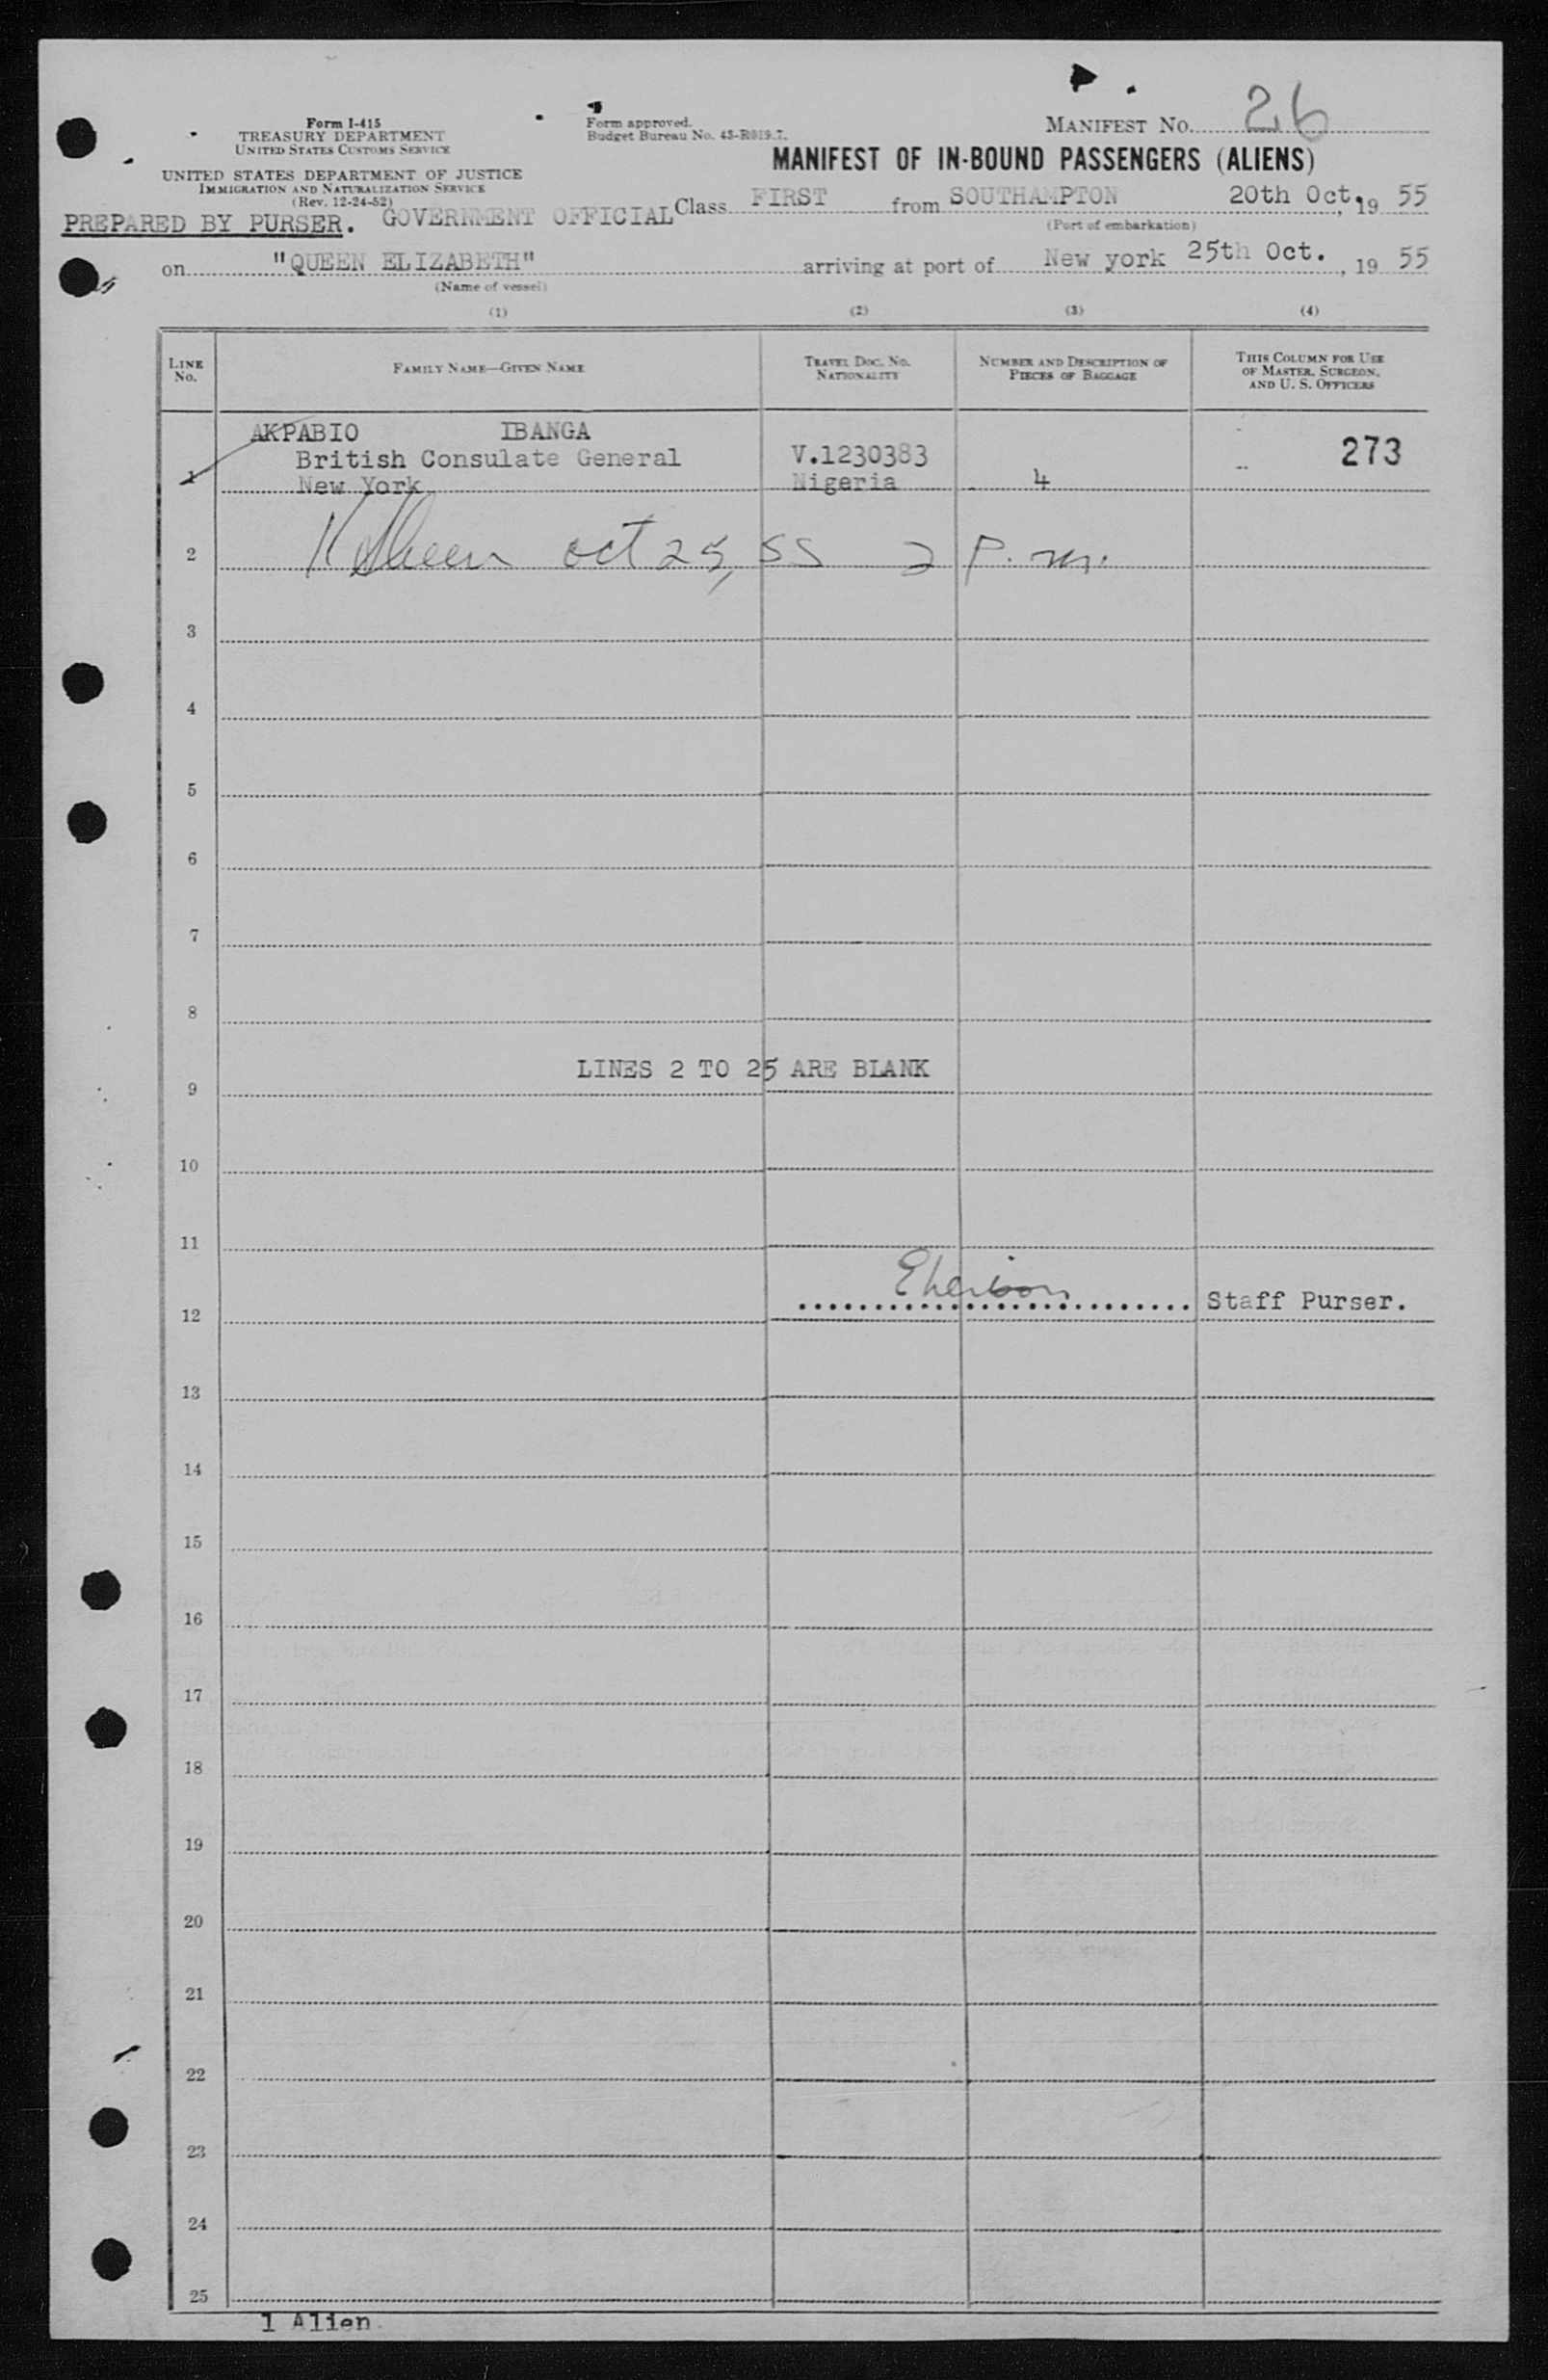 MANIFEST NO. 26
Form I-415
TREASURY DEPARTMENT
UNITED STATES CUSTOMS SERVICE
UNITED STATES DEPARTMENT OF JUSTICE
IMMIGRATION AND NATURALIZATION SERVICE
(Rev. 12-24-52)
Form approved.
Budget Bureau No. 43-R019.7.
MANIFEST OF IN-BOUND PASSENGERS (ALIENS)
PREPARED BY PURSER. GOVERNMENT OFFICIAL Class FIRST from SOUTHAMPTON 20th Oct., 19 55
(Port of embarkation)
on "QUEEN ELIZABETH" arriving at port of New york 25th Oct., 19 55
(Name of vessel)
(1) (2) (3) (4)
LINE NO. FAMILY NAME—GIVEN NAME TRAVEL DOC. NO. NATIONALITY NUMBER AND DESCRIPTION OF PIECES OF BAGGAGE THIS COLUMN FOR USE OF MASTER, SURGEON, AND U. S. OFFICERS
AKPABIO IBANGA
British Consulate General V.1230383 273
1 New York Nigeria 4
2 oct 25, 55 2 P.m.
3
4
5
6
7
8
LINES 2 TO 25 ARE BLANK
9
10
11
12 Staff Purser.
13
14
15
16
17
18
19
20
21
22
23
24
25
1 Alien